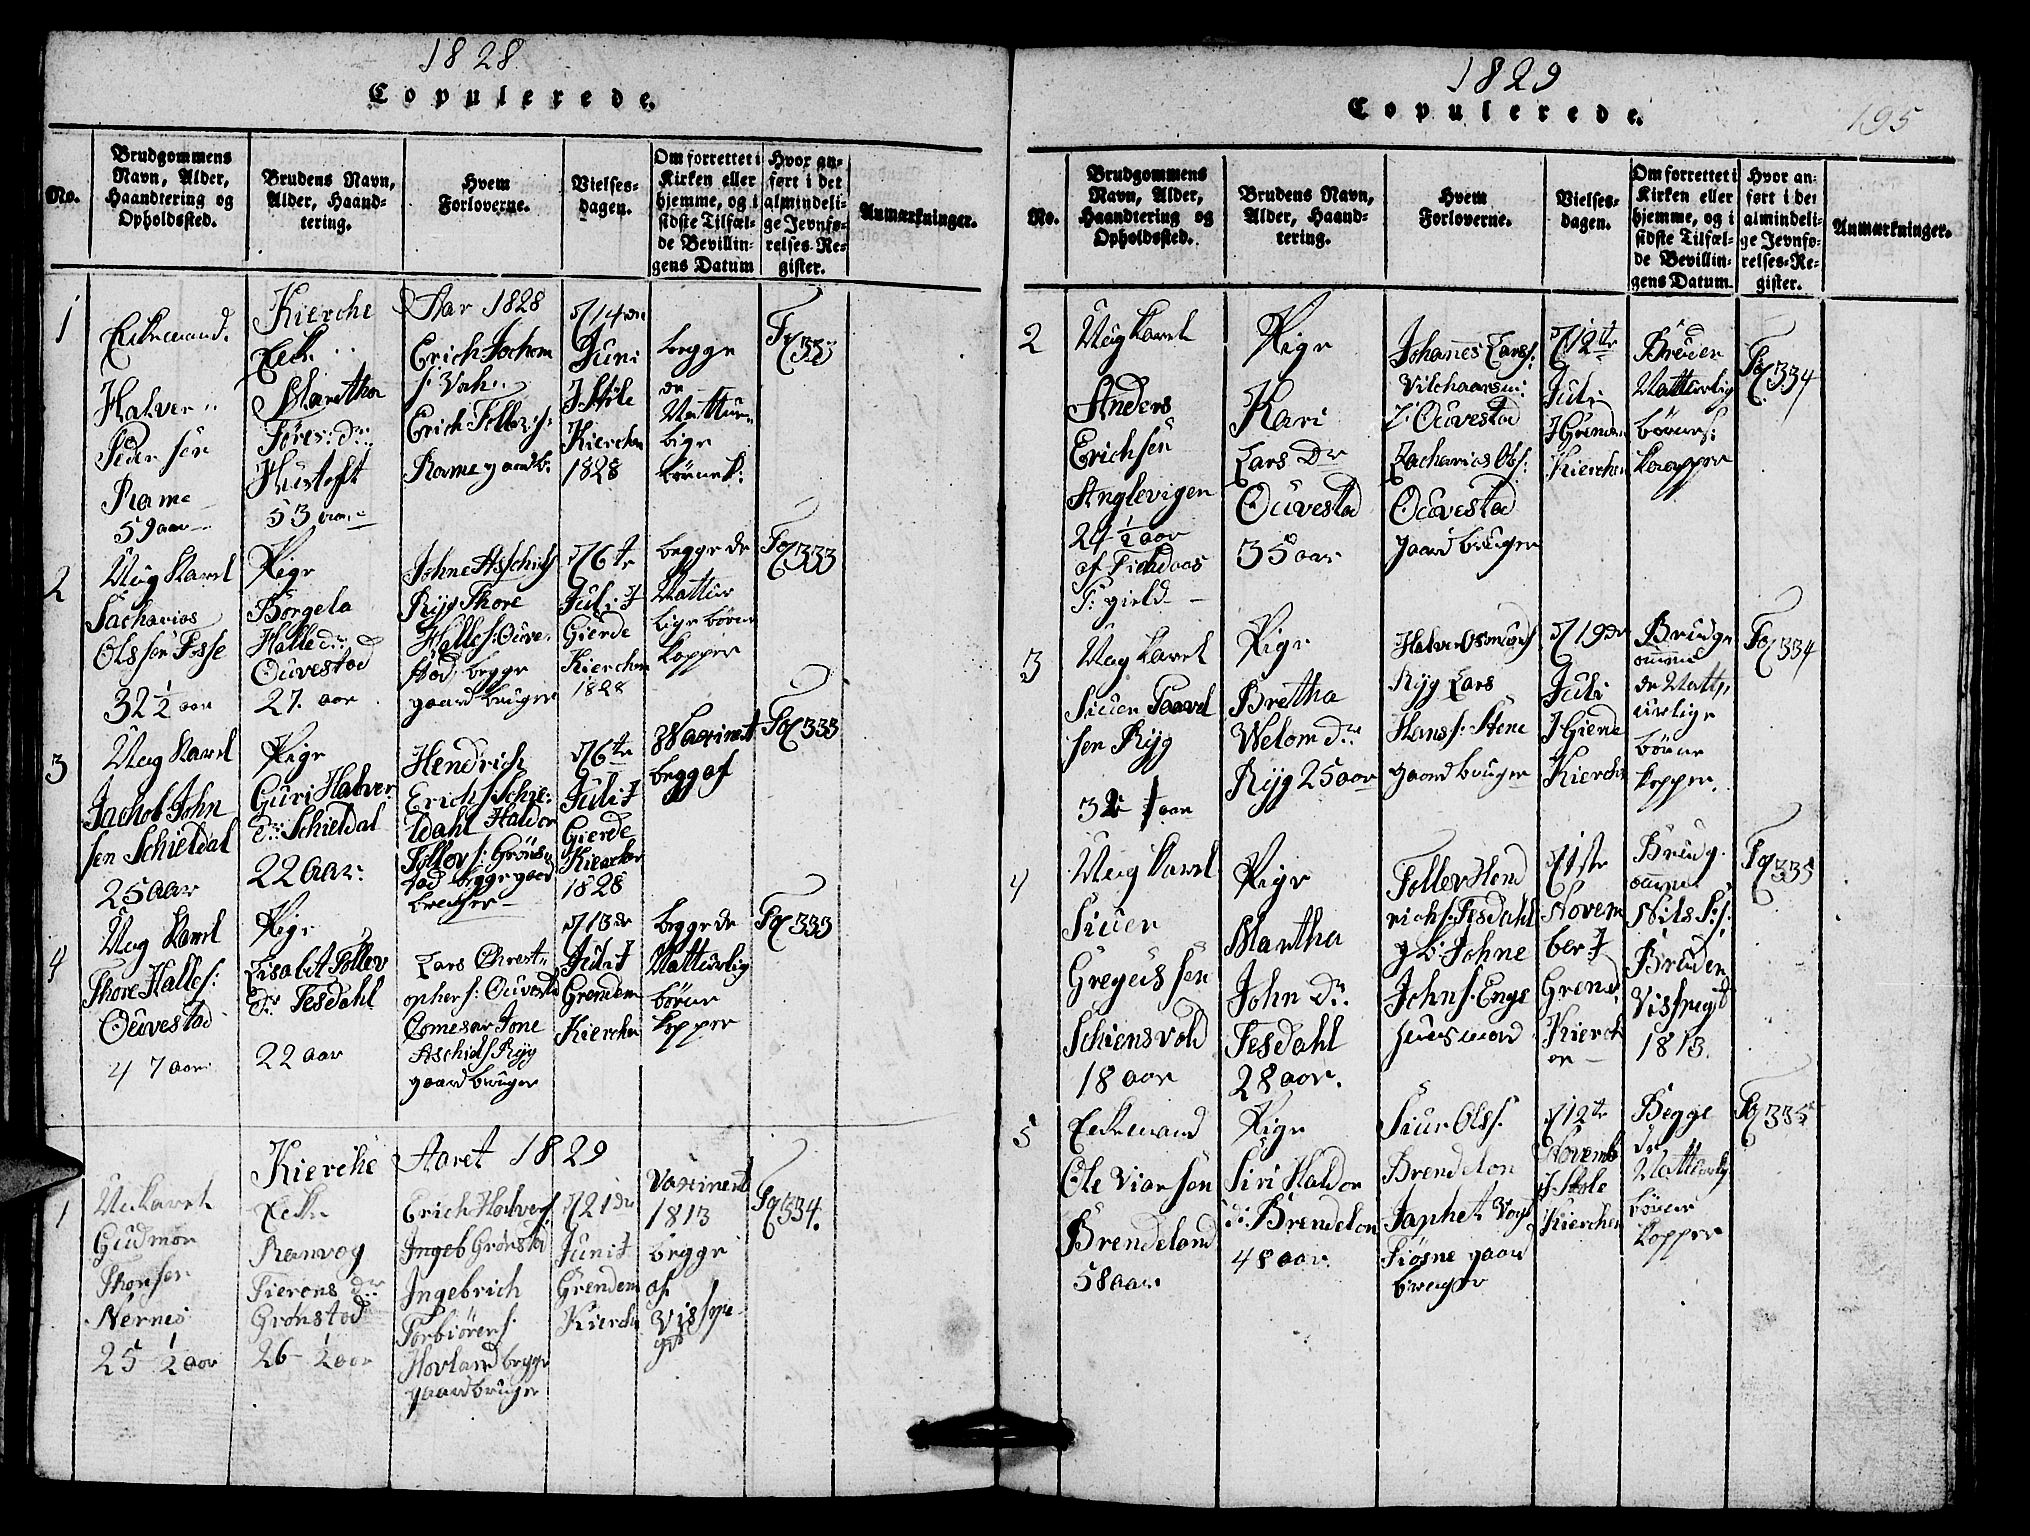 1828
Copulerede.
No.
Brudgommens
Navn, Alder,
Haandtering og
Opholdssted.
Brudens Navn,
Alder, Haand-
tering.
Hvem
Forloverne.
Vielses-
dagen.
Om forrettet i
Kirken eller
hjemme, og i
sidste Tilfæl-
de Bevillin-
gens Datum
Hvor an-
ført i det
almindeli-
ge Jevnfø-
relses-Re-
gister.
Anmærkninger.
Kierche Aar 1828
1
Enkemand.
Halver
Peder sen
Rame
59 aar
Enke
Maretha
Hustoft
53
Erich Jochom
Erich Tollevs:
Rame gaardb.
14de
Juni
Kierchen
1828
begge
de
Nattur
lige
2
Ung Karel
Sacharias
Olssøn Fosse
32 1/2 aar
Pige
Borgela
Halle dr.
Ouvestad
27. aar
Johne Aschids
Ryg Thore
Halles: Ouve
stad begge
gaard bruger
d/6te
Juli I
Gierde
Kierchen
1828
begge de
Nattur
lige børne
kopper
Fol 333
3
Ung Karel
Jachob John
sen Schieldal
25 aar
Pige
Guri Halver
dr. Schieldal
22 aar.
Hendrich
Erichs. Schie
ldahl Haldor
Tollevs: Grøns
tad begge gaard
bruger
d/6te
Juli I
Gierde
Kierchen
1828
Waxinert
begg af
Fol 333
4
Ung Karel
Thore Halles:
Ouvestad
47 aar
Pige
Lisabit Tollev
dr. Tesdahl
22 aar
Lars Chrest
ophers: Ouvestad
Jone
Aschids Ryg
gaard bruger
d/13de
Juli I
Grendem
Kierchen
begge de
Natturlig
børne
kopper
Fol 333
Kierche Aaret 1829
1
Unkarel
Gudmon
Thorsen
Nernes
25 1/2 aar
Ranvog
Sierens dr.
Grønstad
26 1/2 aar
Erich Halvers
Ingeb Grønstad
Ingebrich
Torbiørens.
Hovland begge
gaardbruger
d/21de
Juni I
Grendem
Kierchen
Vaxinert
1813
begge
af
Fol 334.
1829
Copulerede.
195
No.
Brudgommens
Navn, Alder,
Haandtering og
Opholdssted.
Brudens Navn,
Alder, Haand-
tering.
Hvem
Forloverne.
Vielses-
dagen.
Om forrettet i
Kirken eller
hjemme, og i
sidste Tilfæl-
de Bevillin-
gens Datum.
Hvor an-
ført i det
almindeli-
ge Jevnfø-
relses-Re-
gister.
Anmærkninger.
2
Ung Karel
Anders
Erichsen
Anglevigen
24 1/2 aar
af
P: gield
Pige
Kari
Lars Dr
Ouvestad
35 aar
Johanes Lars:
Ouvestad
Zacharias Ols:
Ouvestad
gaard bruger
d/12te
Juli
I Grendem
Kierchen
Bruden
Natturlig
børne
kaapper
Fol 334
3
Ung Karel
Siver Paavel
sen Ryg
aar
Pige
Bretha
Welom dr.
Ryg 25 aar
Halver Osmunds
Ryg Lars
Hans: Stene
gaard bruger
d/19de
Juli
I Gierde
Kierchen
Brudge
omen
de Natt
urlige
børne
kopper.
Fol 334
4
Ung Karel
Siver
Gregus sen
Schiensvold
18 aar
Pige
Martha
John Dr.
Tesdahl
28 aar.
Tollev Hend
richs. Tesdahl
g b Johne
Johns. Enge
Huusmand
d/1ste
Novem
ber I
Grend
Kierch
en
Brudg
omen
Nils
Bruden
1813.
Fol 335
5
Enkemand
Ole Viarsen
Brendeland
58 aar
Pige
Siri Haldor
dr. Brendelan
48 aar.
Siur Olss.
Brendelan
Japhet Vogt
Siøsne gaard
bruger
d/12te
Novemb
I Stole
Kierchen
Begge
de
Natturlig
børne
kopper
Fol 335